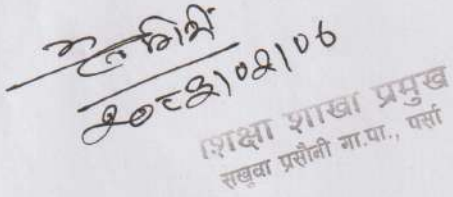 २०८२|०२|०६
शिक्षा शाखा प्रमुख
सखुवा प्रसौनी गा.पा., पर्सा